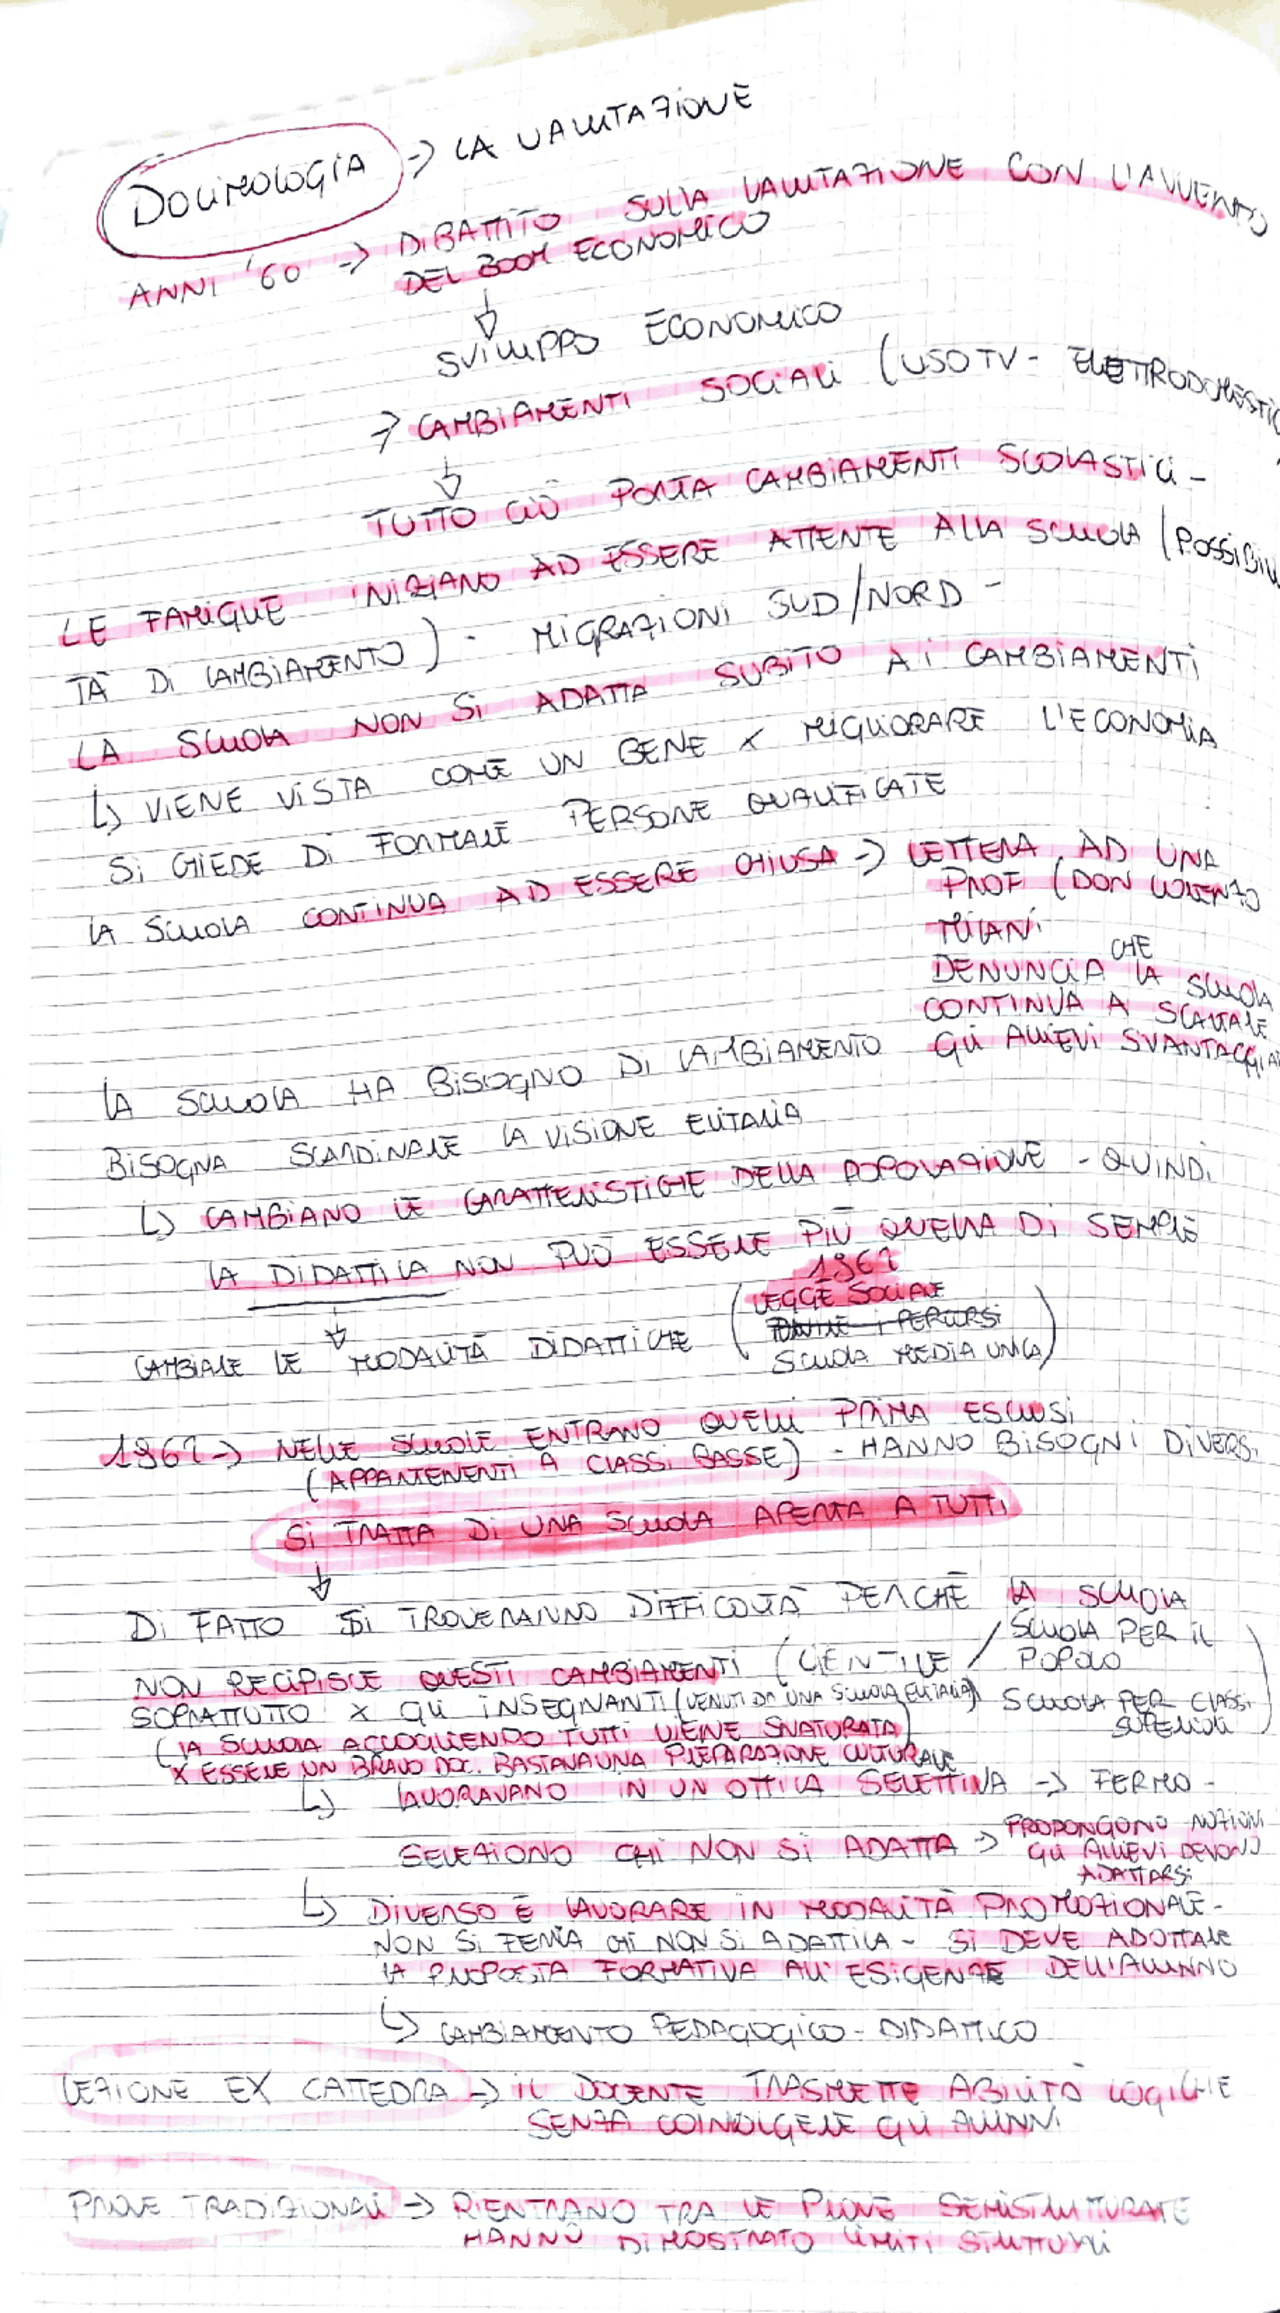 DOCIMOLOGIA → LA VALUTAZIONE
ANNI '60 → DIBATTITO SULLA VALUTAZIONE CON L'AVVENTO
DEL BOOM ECONOMICO
↓
SVILUPPO ECONOMICO
→ CAMBIAMENTI SOCIALI (USO TV - ELETTRODOMESTIC
↓
TUTTO CIÒ PORTA CAMBIAMENTI SCOLASTICI -
LE FAMIGLIE INIZIANO AD ESSERE ATTENTE ALLA SCUOLA (POSSIBILI
TÀ DI CAMBIAMENTO) - MIGRAZIONI SUD/NORD -
LA SCUOLA NON SI ADATTA SUBITO AI CAMBIAMENTI
↳ VIENE VISTA COME UN BENE X MIGLIORARE L'ECONOMIA
SI CHIEDE DI FORMARE PERSONE QUALIFICATE
LA SCUOLA CONTINUA AD ESSERE CHIUSA → LETTERA AD UNA
PROF (DON LORENZO
MILANI
DENUNCIA CHE LA SCUOLA
CONTINUA A SCARTARE
GLI ALLIEVI SVANTAGGIAT
LA SCUOLA HA BISOGNO DI CAMBIAMENTO
BISOGNA SCARDINARE LA VISIONE ELITARIA
↳ CAMBIANO LE CARATTERISTICHE DELLA POPOLAZIONE - QUINDI
LA DIDATTICA NON PUÒ ESSERE PIÙ QUELLA DI SEMPRE
↓
CAMBIARE LE MODALITÀ DIDATTICHE
(1962
LEGGE SOCIALE
SCUOLA MEDIA UNICA)
1962 → NELLE SCUOLE ENTRANO QUELLI PRIMA ESCLUSI
(APPARTENENTI A CLASSI BASSE) - HANNO BISOGNI DIVERSI
SI TRATTA DI UNA SCUOLA APERTA A TUTTI
↓
DI FATTO SI TROVERANNO DIFFICOLTÀ PERCHÈ LA SCUOLA
NON RECIPISCE QUESTI CAMBIAMENTI (GENTILE / SCUOLA PER IL
POPOLO
SCUOLA PER CLASSI
SUPERIORI)
SOPRATTUTTO X GLI INSEGNANTI (VENUTI DA UNA SCUOLA ELITARIA)
(LA SCUOLA ACCOGLIENDO TUTTI VIENE SNATURATA)
X ESSERE UN BRAVO DOC. BASTAVA UNA PREPARAZIONE CULTURALE
↳ LAVORAVANO IN UN OTTICA SELETTIVA → FERMO -
SELEZIONO CHI NON SI ADATTA → PROPONGONO NOZIONI
GLI ALLIEVI DEVONO
ADATTARSI
↳ DIVERSO È LAVORARE IN MODALITÀ PROMOZIONALE -
NON SI FERMA CHI NON SI ADATTICA - SI DEVE ADOTTARE
LA PROPOSTA FORMATIVA ALL'ESIGENZE DELL'ALUNNO
↳ CAMBIAMENTO PEDAGOGICO - DIDATTICO
LEZIONE EX CATTEDRA → IL DOCENTE TRASMETTE ABILITÀ LOGICHE
SENZA COINVOLGERE GLI ALUNNI
PROVE TRADIZIONALI → RIENTRANO TRA LE PROVE SEMISTRUTTURATE
HANNO DIMOSTRATO LIMITI STRUTTURALI